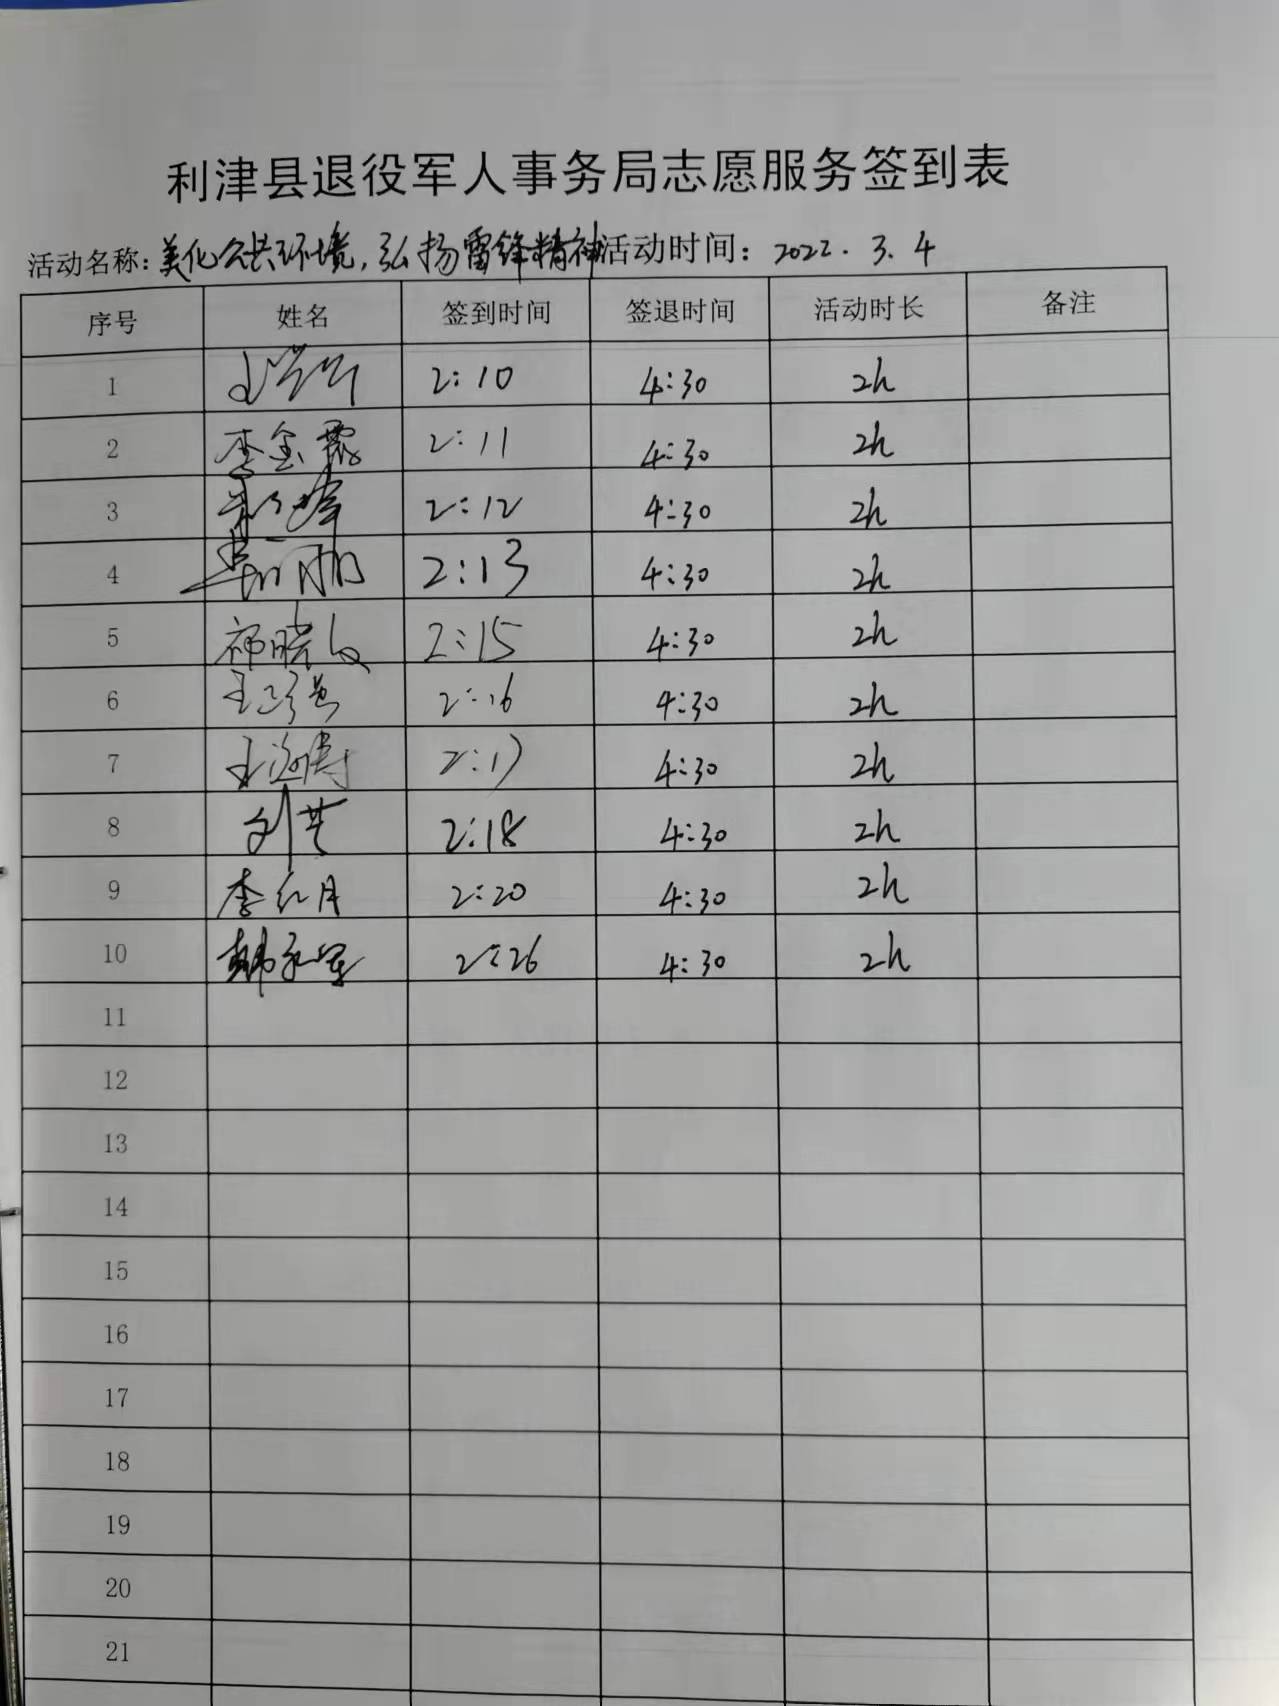 利津县退役军人事务局志愿服务签到表
活动名称:美化公共环境,弘扬雷锋精神活动时间:2022.3.4
序号 姓名 签到时间 签退时间 活动时长 备注
1 2:10 4:30 2h
2 李金霞 2:11 4:30 2h
3 2:12 4:30 2h
4 2:13 4:30 2h
5 祁晓敏 2:15 4:30 2h
6 2:16 4:30 2h
7 王海涛 2:17 4:30 2h
8 刘芸 2:18 4:30 2h
9 李红月 2:20 4:30 2h
10 韩永军 2:26 4:30 2h
11
12
13
14
15
16
17
18
19
20
21